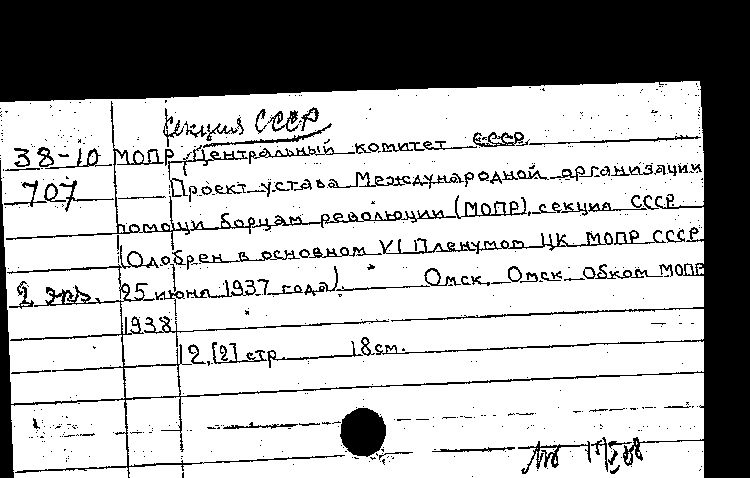 Секция СССР
38-10 МОПР, Центральный комитет СССР.
707 Проект устава Международной организации
помощи борцам революции (МОПР), секция СССР
(Одобрен в основном VI Пленумом ЦК МОПР СССР
2 экз. 25 июня 1937 года). Омск, Омск. Обком МОПР
1938
12, [2] стр. 18 см.